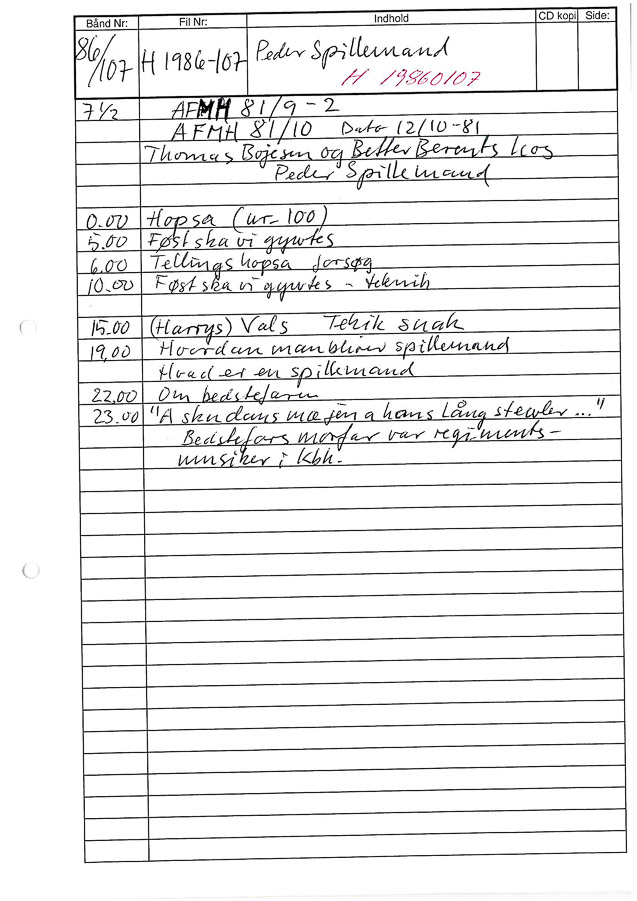 Bånd Nr: Fil Nr: Indhold CD kopi Side:
86/107 H 1986-107 Peder Spillemand
H 19860107
7 1/2 AFMH 81/9-2
AFMH 81/10 Dato 12/10-81
Thomas Bojesen og Better Berents hos
Peder Spillemand
0.00 Hopsa (ur-100)
5.00 Føst ska vi gywtes
6.00 Tellingshopsa forsøg
10.00 Føst ska vi gywtes - teknik
15.00 (Harrys) Vals Tekik snak
19,00 Hvordan man bliver spillemand
Hvad er en spillemand
22,00 Om bedstefaren
23.00 "A sku dans mæ jen a hans lång stewler ..."
Bedstefars morfar var regiments-
musiker i Kbh.